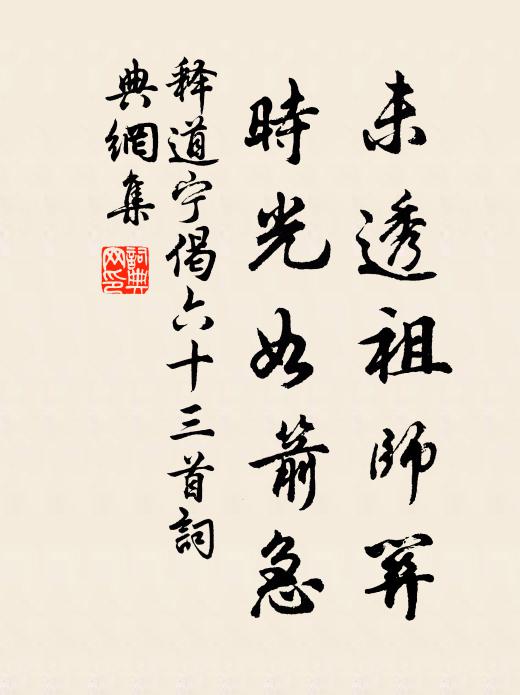 未透祖師關
時光如箭急
释道宁偈六十三首詞
典網集
詞典網印